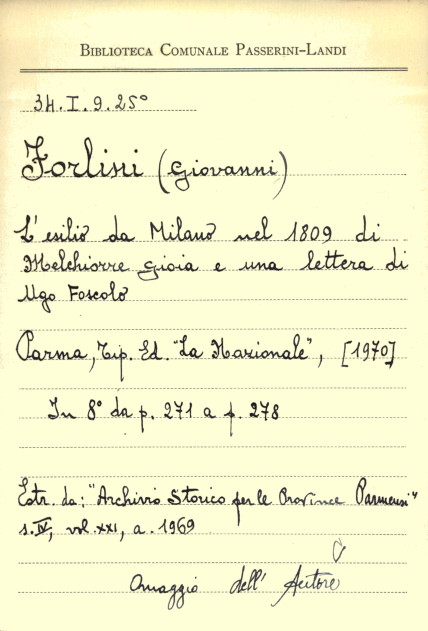 BIBLIOTECA COMUNALE PASSERINI-LANDI
34.I.9.25°
Forlini (Giovanni)
L'esilio da Milano nel 1809 di
Melchiorre Gioia e una lettera di
Ugo Foscolo
Parma, Tip. Ed. "La Nazionale", [1970]
In 8° da p. 271 a p. 278
Estr. da: "Archivio Storico per le Province Parmensi"
s. IV, vol. XXI, a. 1969
Omaggio dell' Autore